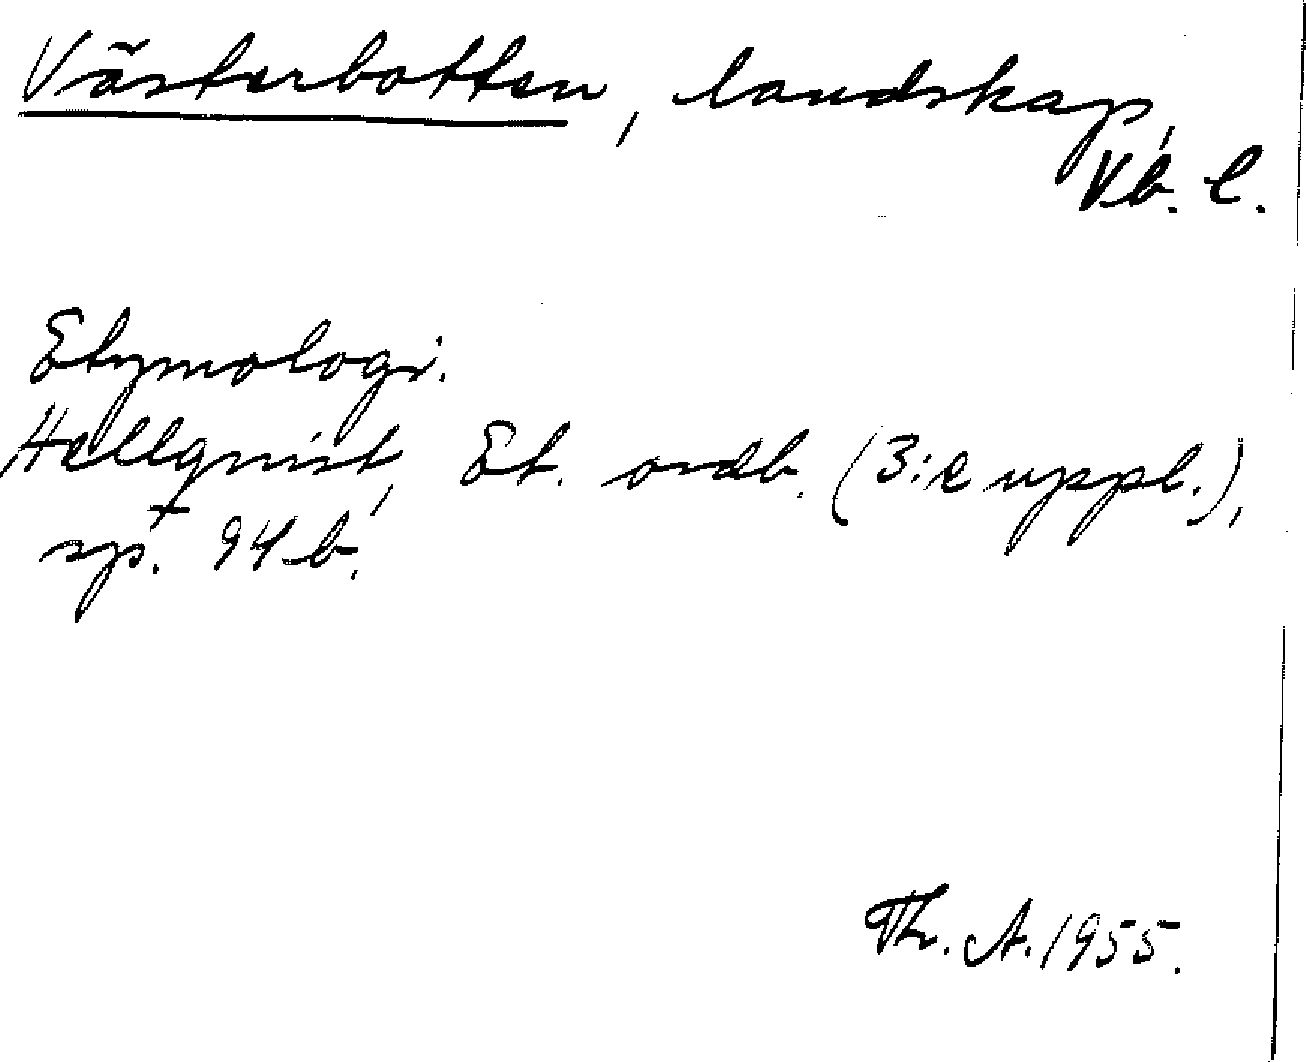 Västerbotten, landskap,
Vb. l.
Etymologi.
Hellqvist, Et. ordb. (3:e uppl.),
sp. 94 b.
Th. A. 1955.